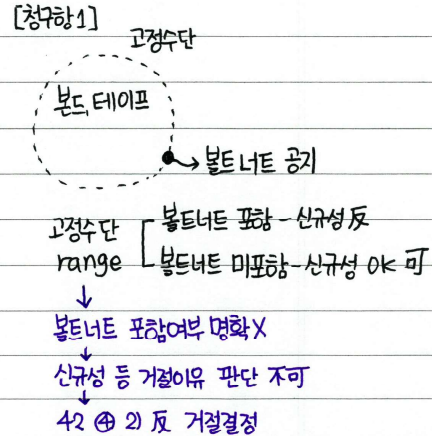 [청구항1]
고정수단
본드, 테이프
볼트너트 공지
고정수단 range
볼트너트 포함 - 신규성 反
볼트너트 미포함 - 신규성 OK 可
볼트너트 포함여부 명확X
신규성 등 거절이유 판단 不可
42 ④ 2) 反 거절결정